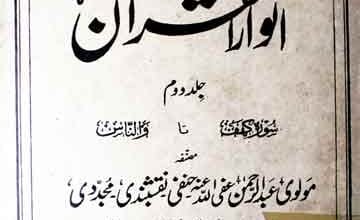 انوار القرآن
جلد دوم
سورۃ کہف تا والناس
مصنفہ
مولوی عبدالرحمٰن عفی اللہ عنہ حنفی نقشبندی مجددی